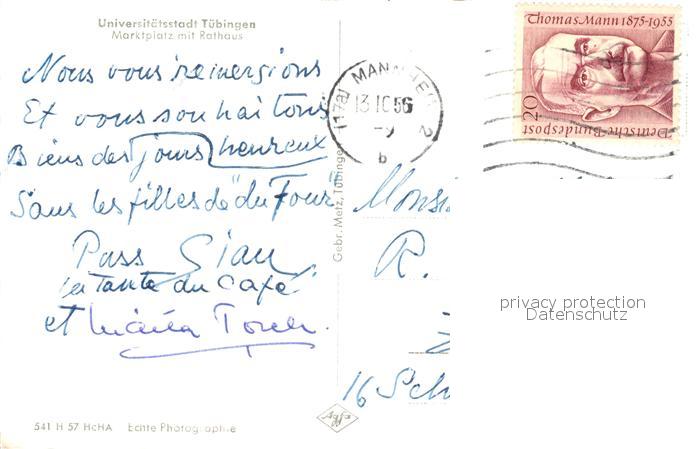 Universitätsstadt Tübingen
Marktplatz mit Rathaus
Nous vous remergions
Et vous souhaitons
Biens des jours heureux
Sans les filles de du Four
Pass
la Tante du Café
et
541 H 57 HcHA Echte Photographie
Gebr. Metz, Tübingen
(17a) MANNHEIM 2
13.10.56
-9
b
Thomas Mann 1875-1955
20
Deutsche Bundespost
Monsi
R.
16 Sch
Agfa
privacy protection
Datenschutz